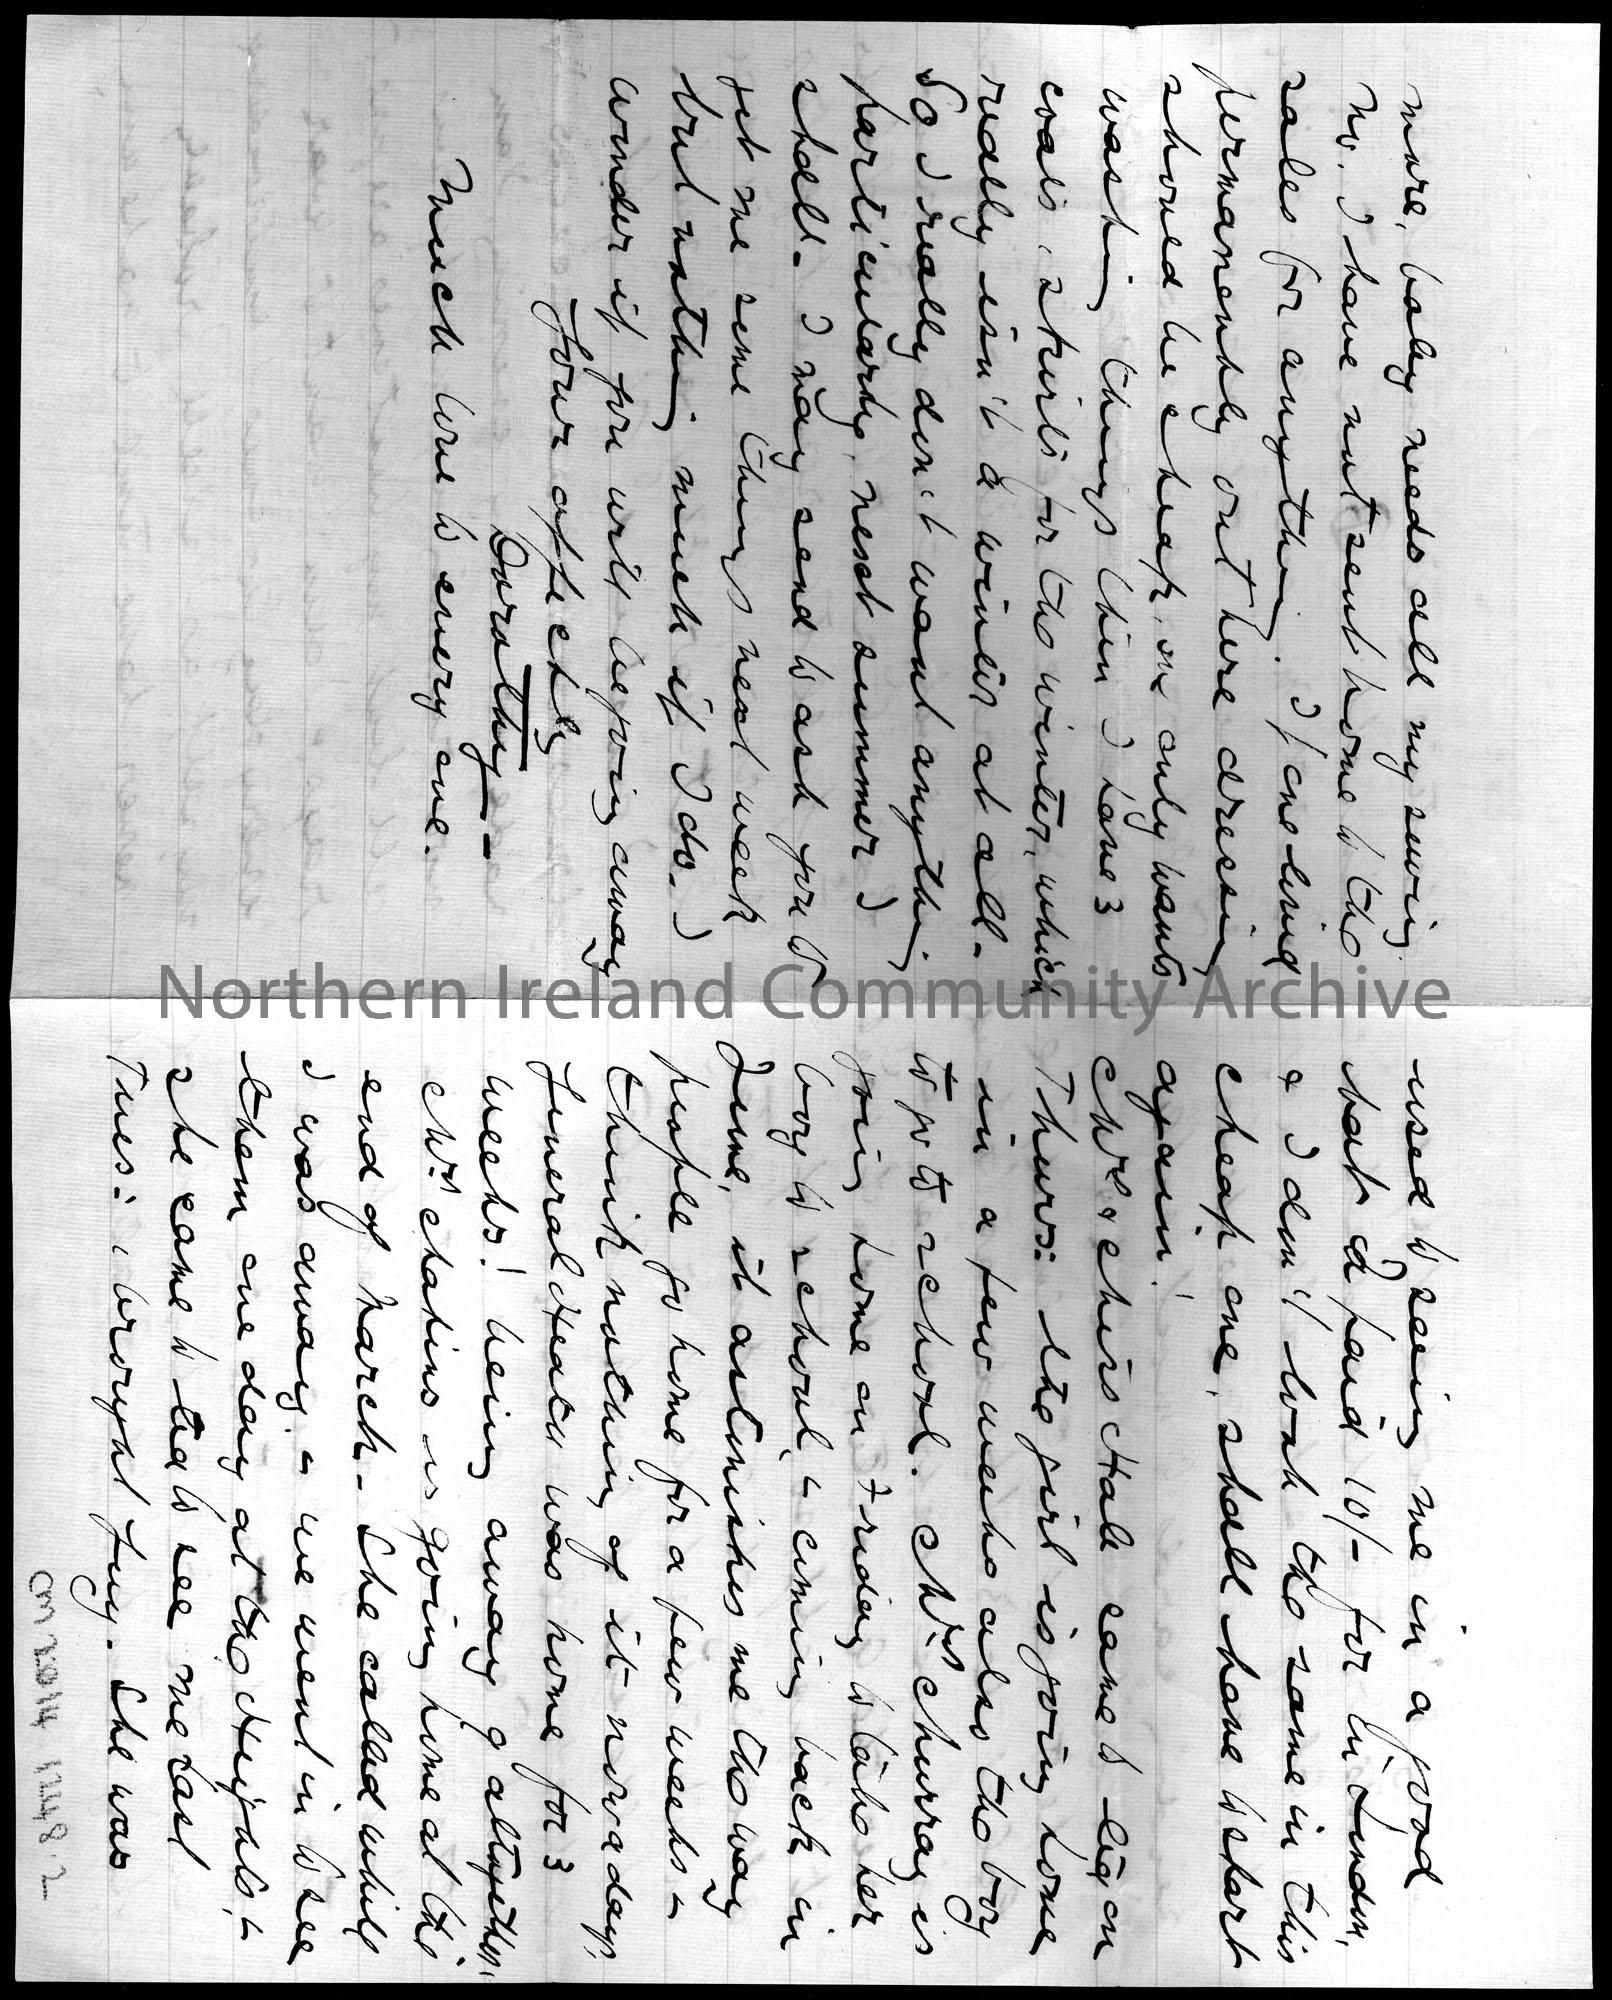 more, baby needs all my sewing.
No. I have not sent home to the
sales for anything. If one lived
permanently out here dressing
should be cheap, one only wants
washing things then I have 3
coats & skirts for the winter, which
really isn't a winter at all.
So I really don't want anything
particularly, next summer I
shall. I may send to ask you to
get me some things next week
but nothing much if I do. I
wonder if you will be going away
Your affectly
Dorothy
Much love to every one.
used to seeing me in a good
hat I paid 10/- for in London,
& I don't look the same in this
cheap one, shall have to start
again!
& Chris Hale came to tea on
Thurs: the girl is going home
in a few weeks also the boy
to go to school. Mrs Churray is
going home on Friday to take her
boy to school, & coming back in
June, it astonishes me the way
people go home for a few weeks &
think nothing of it nowadays,
General Heath was home for 3
weeks! being away 9 altogether.
is going home at the
end of March. She called while
I was away, & we went in to see
them one day at the Heights, &
she came to tea to see me last
Tues: & brought Jury. She was
CM 2014 1154.8.2
Northern Ireland Community Archive